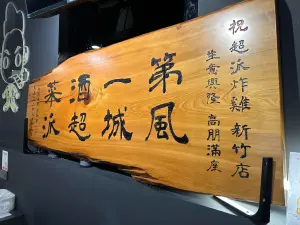 祝 超派炸雞 新竹店
生意興隆 高朋滿座
第一
風城超派